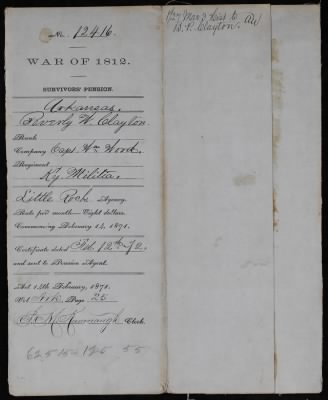 No. 12416.
WAR OF 1812.
SURVIVORS' PENSION.
Arkansas.
Beverly W. Clayton.
Rank
Company Capt. Wm. Wood.
Regiment
Ky. Militia.
Little Rock Agency.
Rate per month—Eight dollars.
Commencing February 14, 1871.
Certificate dated Feb. 12th 72
and sent to Pension Agent.
Act 14th February, 1871.
Vol. Ark Page 25
Kavanaugh Clerk.
to
B. P. Clayton.